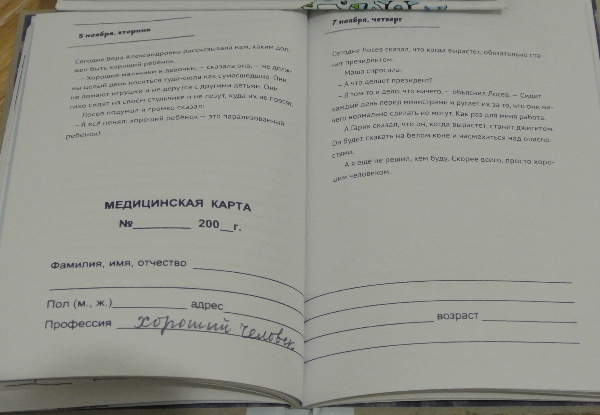 5 ноября, вторник
Сегодня Вера Александровна рассказывала нам, каким дол-
жен быть хороший ребёнок.
– Хорошие мальчики и девочки, – сказала она, – не долж-
ны целый день носиться туда-сюда как сумасшедшие. Они
не ломают игрушек и не дерутся с другими детьми. Они
тихо сидят на своём стульчике и не лезут, куда их не просят.
Лосев подумал и громко сказал:
– Я всё понял: хороший ребёнок – это парализованный
ребёнок!
МЕДИЦИНСКАЯ КАРТА
№ 200 г.
Фамилия, имя, отчество
Пол (м., ж.) адрес
Профессия хороший человек
7 ноября, четверг
Сегодня Лосев сказал, что когда вырастет, обязательно ста-
нет президентом.
Маша спросила:
– А что делает президент?
– В том-то и дело, что ничего, – объяснил Лосев. – Сидит
каждый день перед министрами и ругает их за то, что они ни-
чего нормально сделать не могут. Как раз для меня работа.
А Гарик сказал, что он, когда вырастет, станет джигитом.
Он будет скакать на белом коне и насмехаться над опасно-
стями.
А я ещё не решил, кем буду. Скорее всего, просто хоро-
шим человеком.
возраст